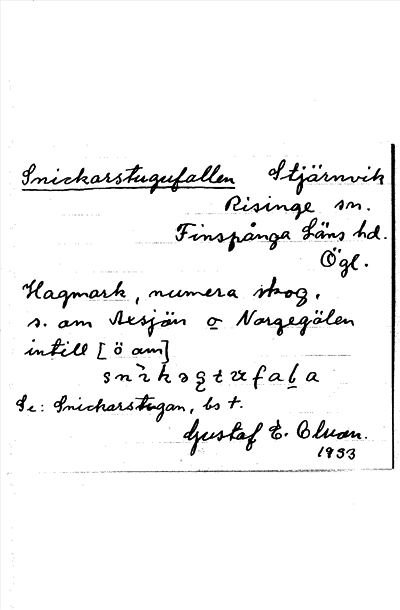 Snickarstugufallen Stjärnvik
Risinge sn.
Finspånga Läns hd.
Ögl.
Hagmark, numera skog.
s. om Axsjön o Norgegölen
intill [ö om]
Se: Snickarstugan, bs t.
Gustaf E. Olson.
1933